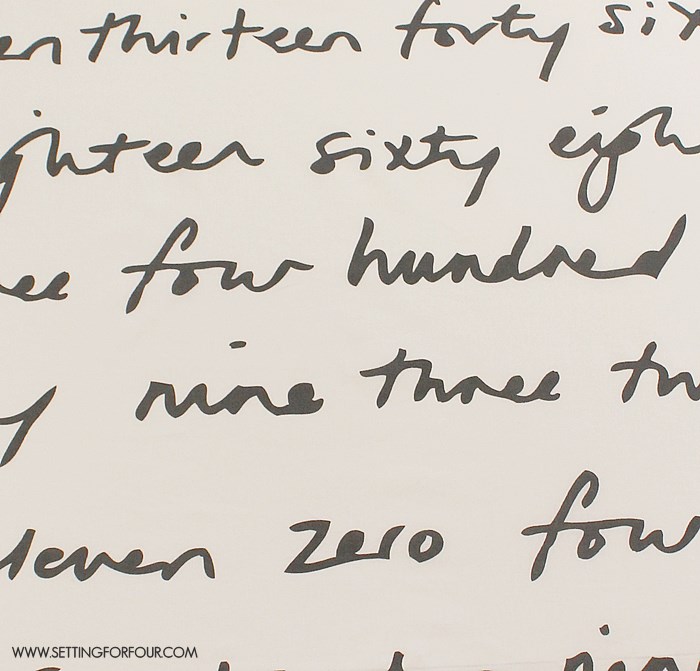 en thirteen forty six
ighteen sixty eigh
ee four hundred
y nine three tw
leven zero four
WWW.SETTINGFORFOUR.COM